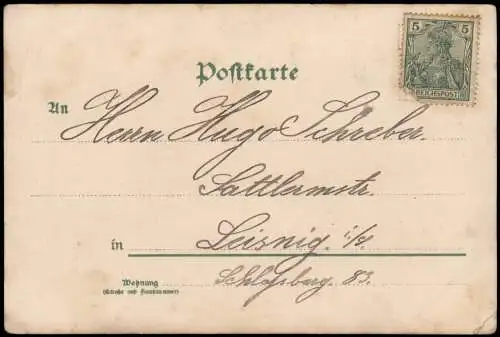 5 5
REICHSPOST
Postkarte
An Herrn Hugo Schreber.
Sattlermstr.
in Leisnig. i/S.
Wohnung
(Straße und Hausnummer)
Schloßberg. 83.